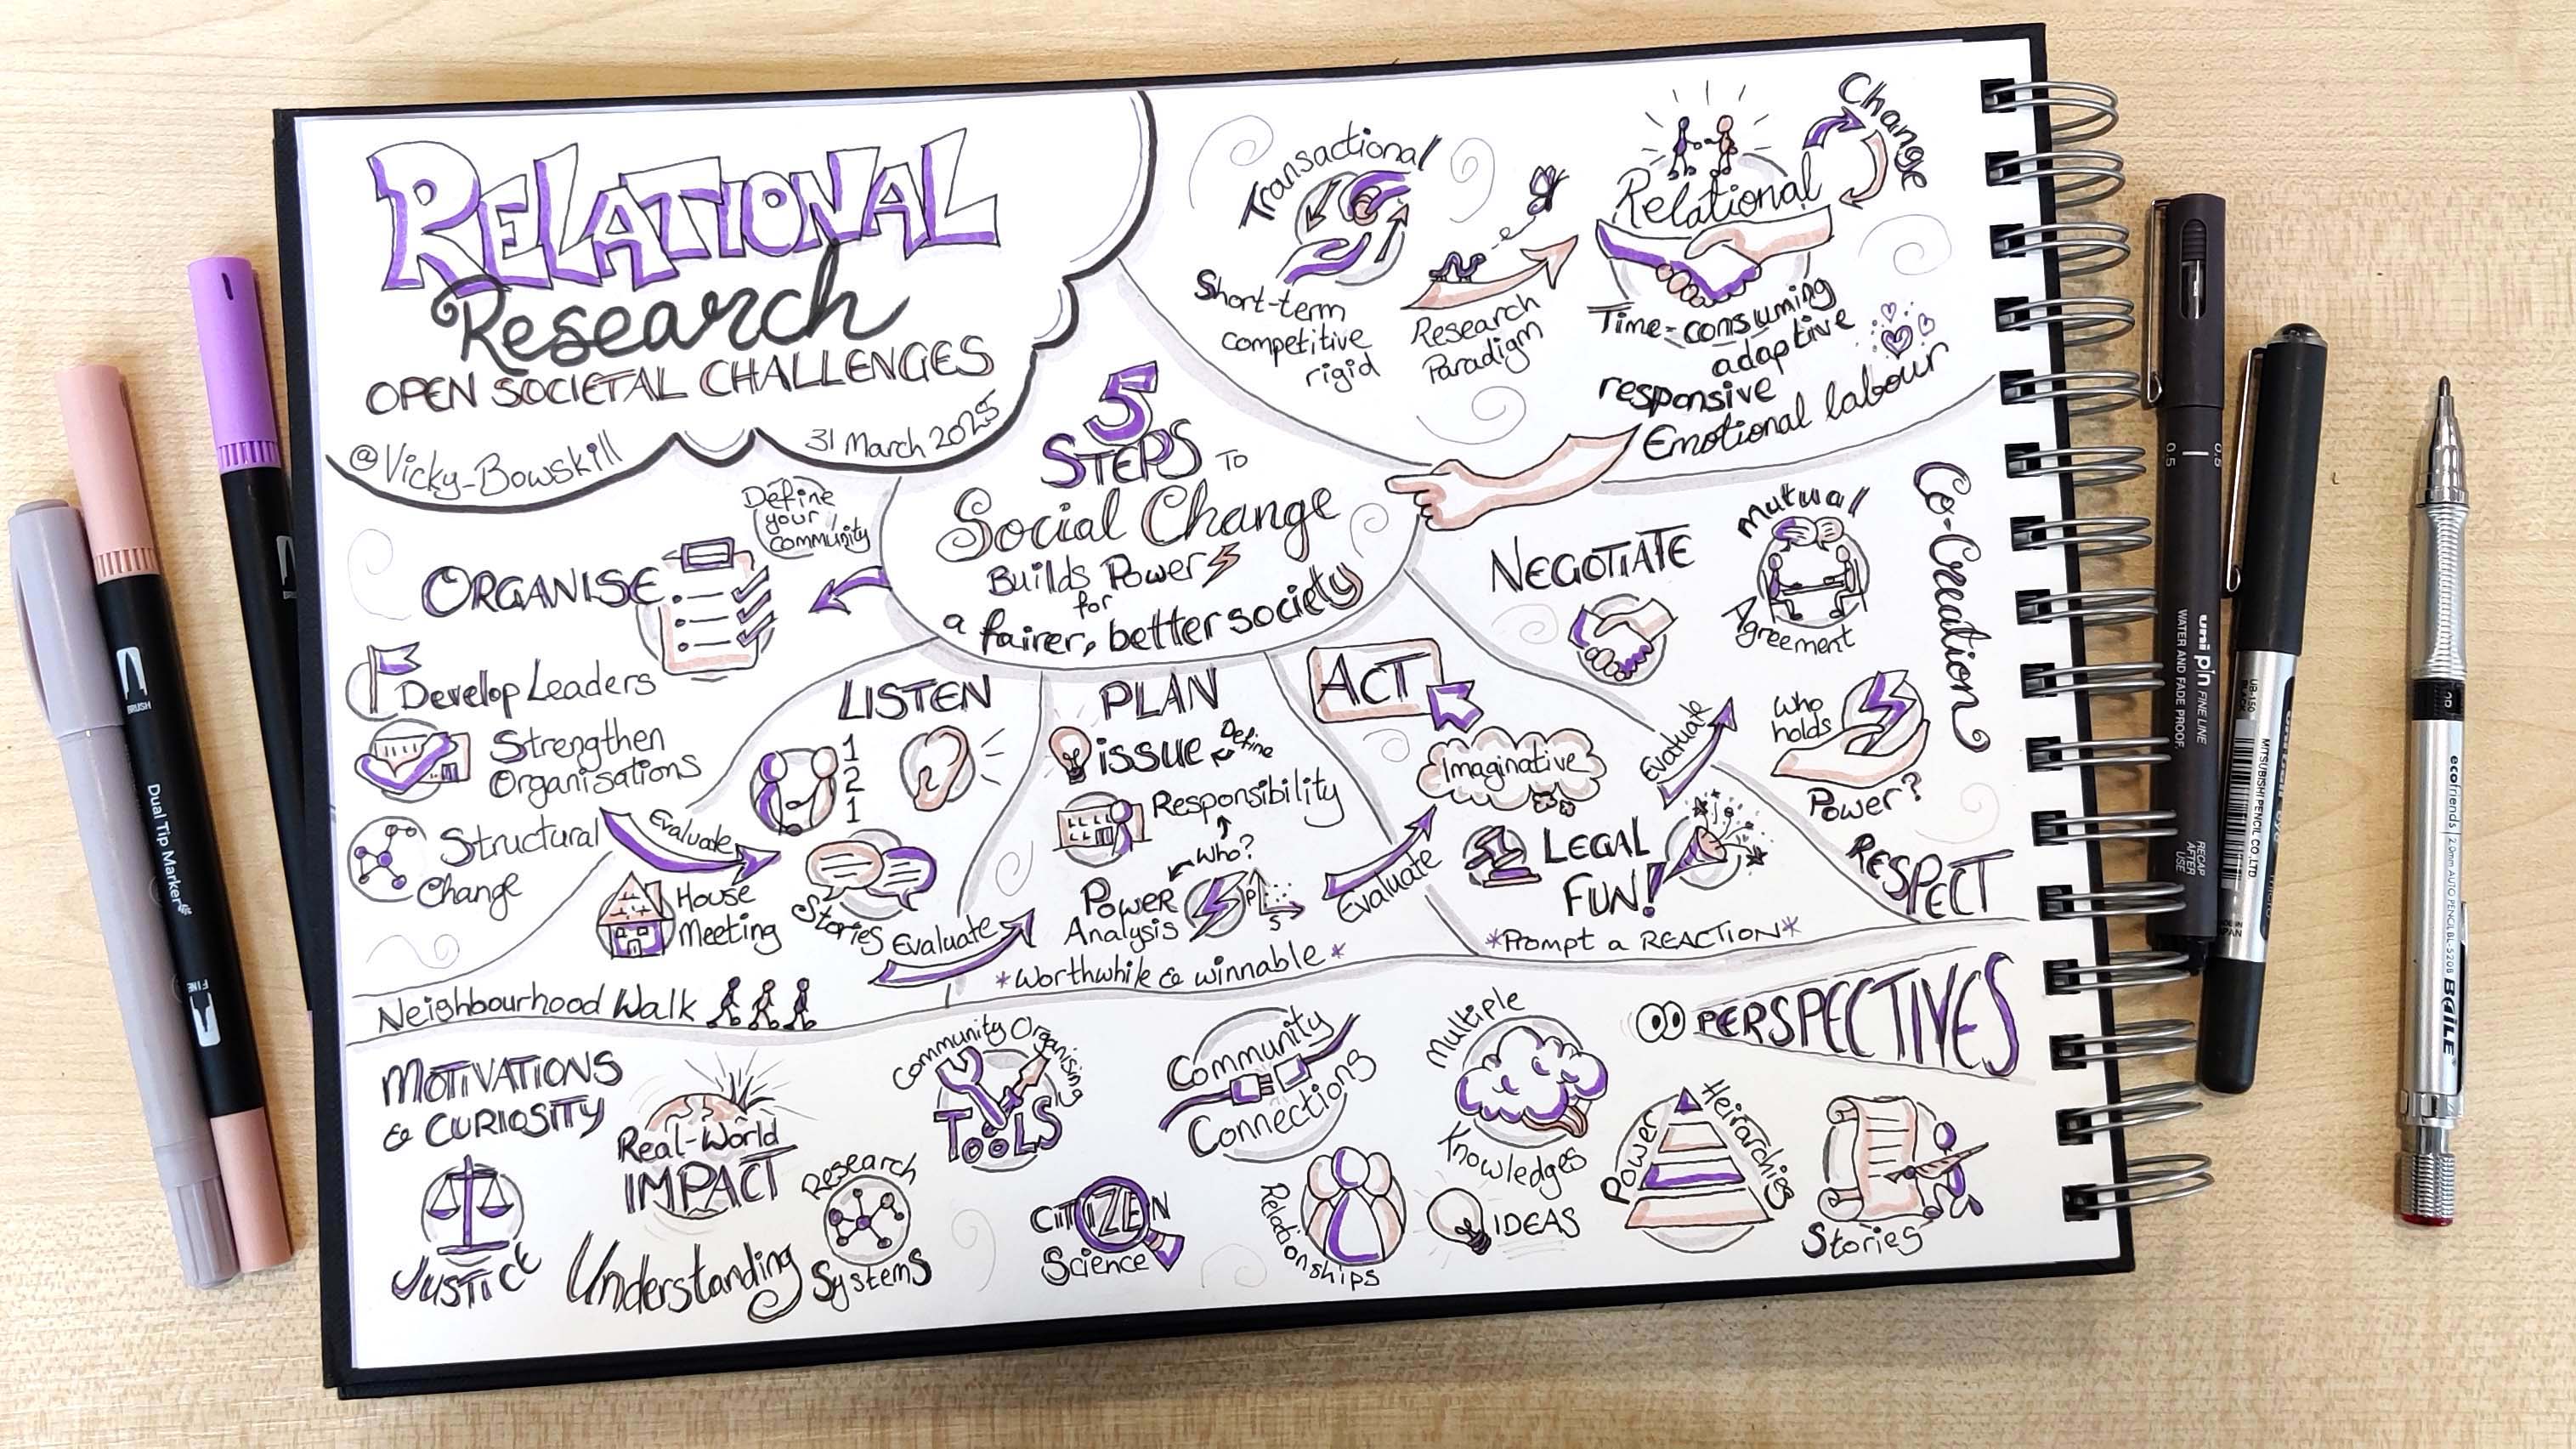 RELATIONAL
Research
OPEN SOCIETAL CHALLENGES
@Vicky_Bowskill
31 March 2025
Transactional
Short-term
competitive
rigid
Research
Paradigm
Relational
Change
Time-consuming
adaptive
responsive
Emotional labour
5
STEPS TO
Social Change
Builds Power
for
a fairer, better society
Define
your
community
ORGANISE
Develop Leaders
Strengthen
Organisations
Structural
Change
Evaluate
LISTEN
1
2
1
House
Meeting
Stories
Neighbourhood Walk
Evaluate
PLAN
issue
Define
Responsibility
Who?
Power
Analysis
P
S
*Worthwhile & winnable*
Evaluate
ACT
Imaginative
LEGAL
FUN!
*Prompt a REACTION*
Evaluate
NEGOTIATE
Mutual
Agreement
Co-Creation
Who
holds
Power?
RESPECT
MOTIVATIONS
& CURIOSITY
JUSTICE
Real-World
IMPACT
Understanding
Research
Systems
Community Organising
TOOLS
CITIZEN
Science
Community
Connections
Relationships
Multiple
Knowledges
IDEAS
PERSPECTIVES
Power
Heirarchies
Stories
BRUSH
Dual Tip Marker
FINE
0.5
0.5
uni pin FINE LINE
WATER AND FADE PROOF.
RECAP
AFTER
USE
UB-150
MITSUBISHI PENCIL CO.,LTD.
ecofriends 2.0mm AUTO PENCIL BL-5208 BAILE